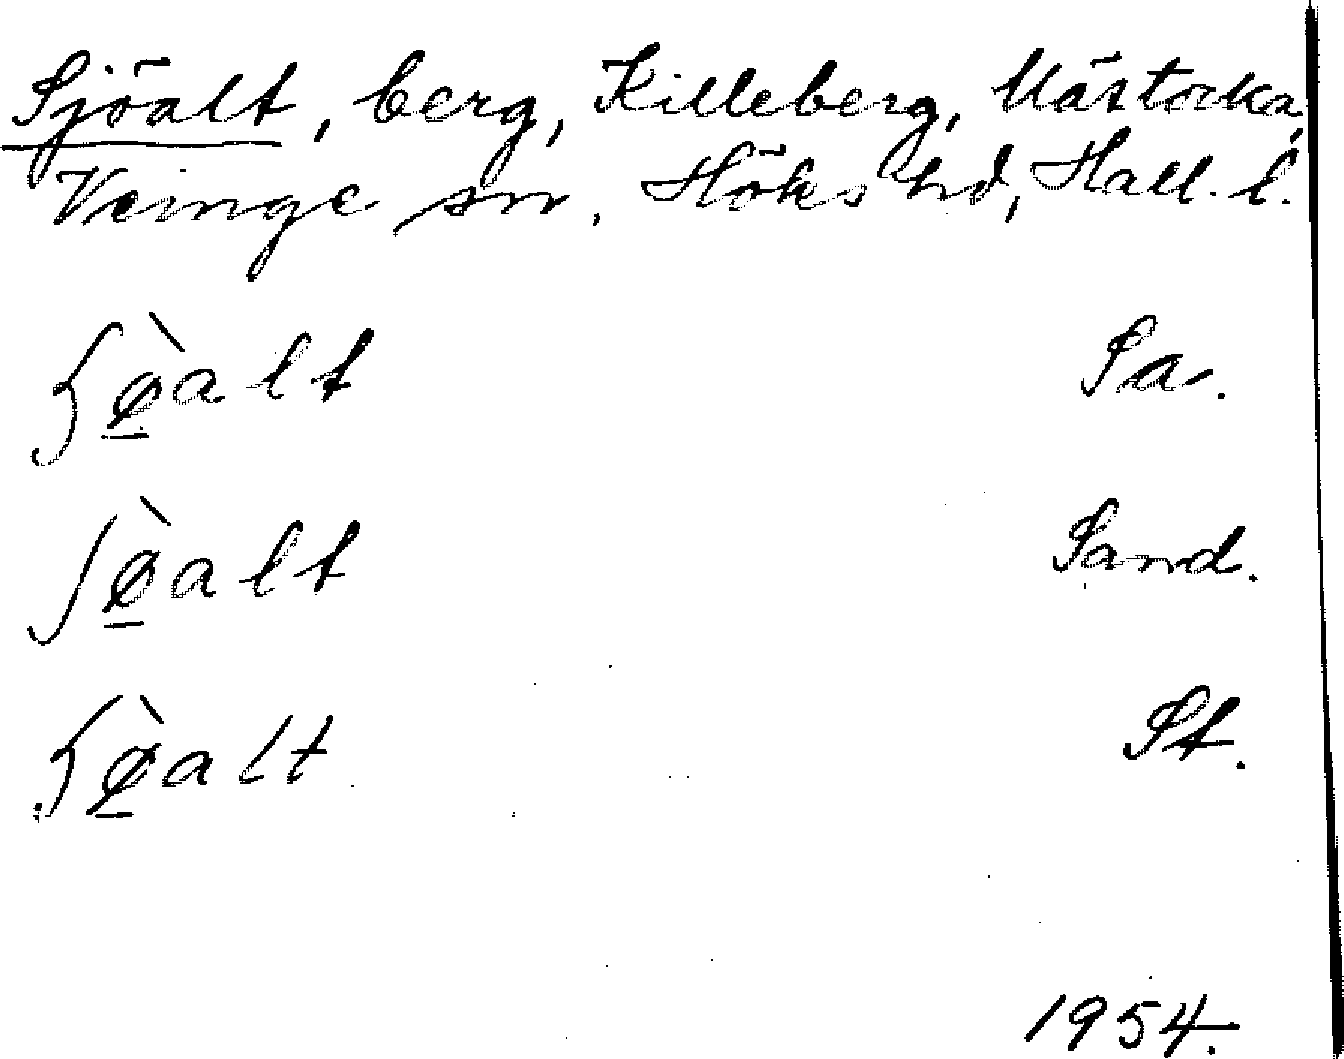 Sjöalt, berg, Killeberg, Mästocka,
Veinge sn, Höks hd, Hall. l.
ʃø̠̀alt Sa.
ʃø̠̀alt Sand.
ʃø̠̀alt St.
1954.